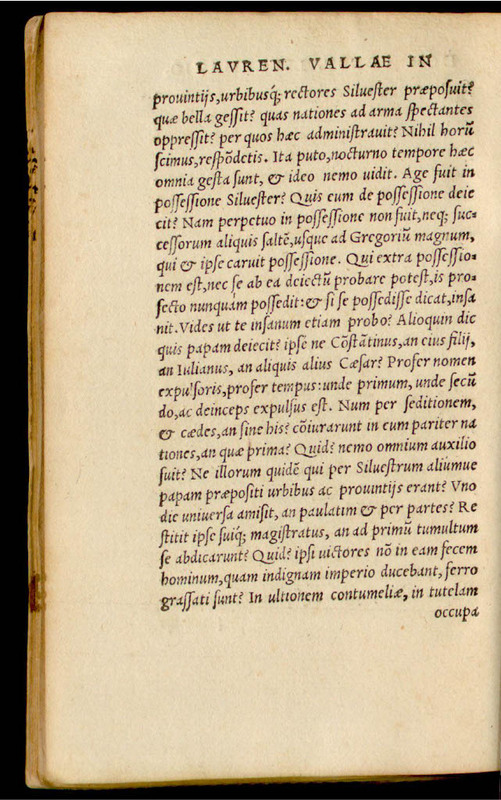 LAVREN. VALLAE IN
prouintijs,urbibusq́; rectores Siluester præposuit?
quæ bella gessit? quas nationes ad arma spectantes
oppressit? per quos hæc administrauit? Nihil horũ
scimus,respõdetis. Ita puto,nocturno tempore hæc
omnia gesta sunt, & ideo nemo uidit. Age fuit in
possessione Siluester? Quis eum de possessione deie
cit? Nam perpetuo in possessione non fuit,neq; suc-
cessorum aliquis saltẽ,usque ad Gregoriũ magnum,
qui & ipse caruit possessione. Qui extra possessio-
nem est,nec se ab ea deiectũ probare potest,is pro-
fecto nunquám possedit:& si se possedisse dicat,insa
nit. Vides ut te insanum etiam probo? Alioquin dic
quis papam deiecit? ipse ne Cõstãtinus,an eius filij,
an Iulianus, an aliquis alius Cæsar? Profer nomen
expulsoris,profer tempus:unde primum, unde secũ
do,ac deinceps expulsus est. Num per seditionem,
& cædes,an sine his? cõiurarunt in eum pariter na
tiones,an quæ prima? Quid? nemo omnium auxilio
fuit? Ne illorum quidẽ qui per Siluestrum aliumue
papam præpositi urbibus ac prouintijs erant? Vno
die uniuersa amisit, an paulatim & per partes? Re
stitit ipse suiq́; magistratus, an ad primũ tumultum
se abdicarunt? Quid? ipsi uictores nõ in eam fecem
hominum,quam indignam imperio ducebant, ferro
grassati sunt? In ultionem contumeliæ, in tutelam
occupa